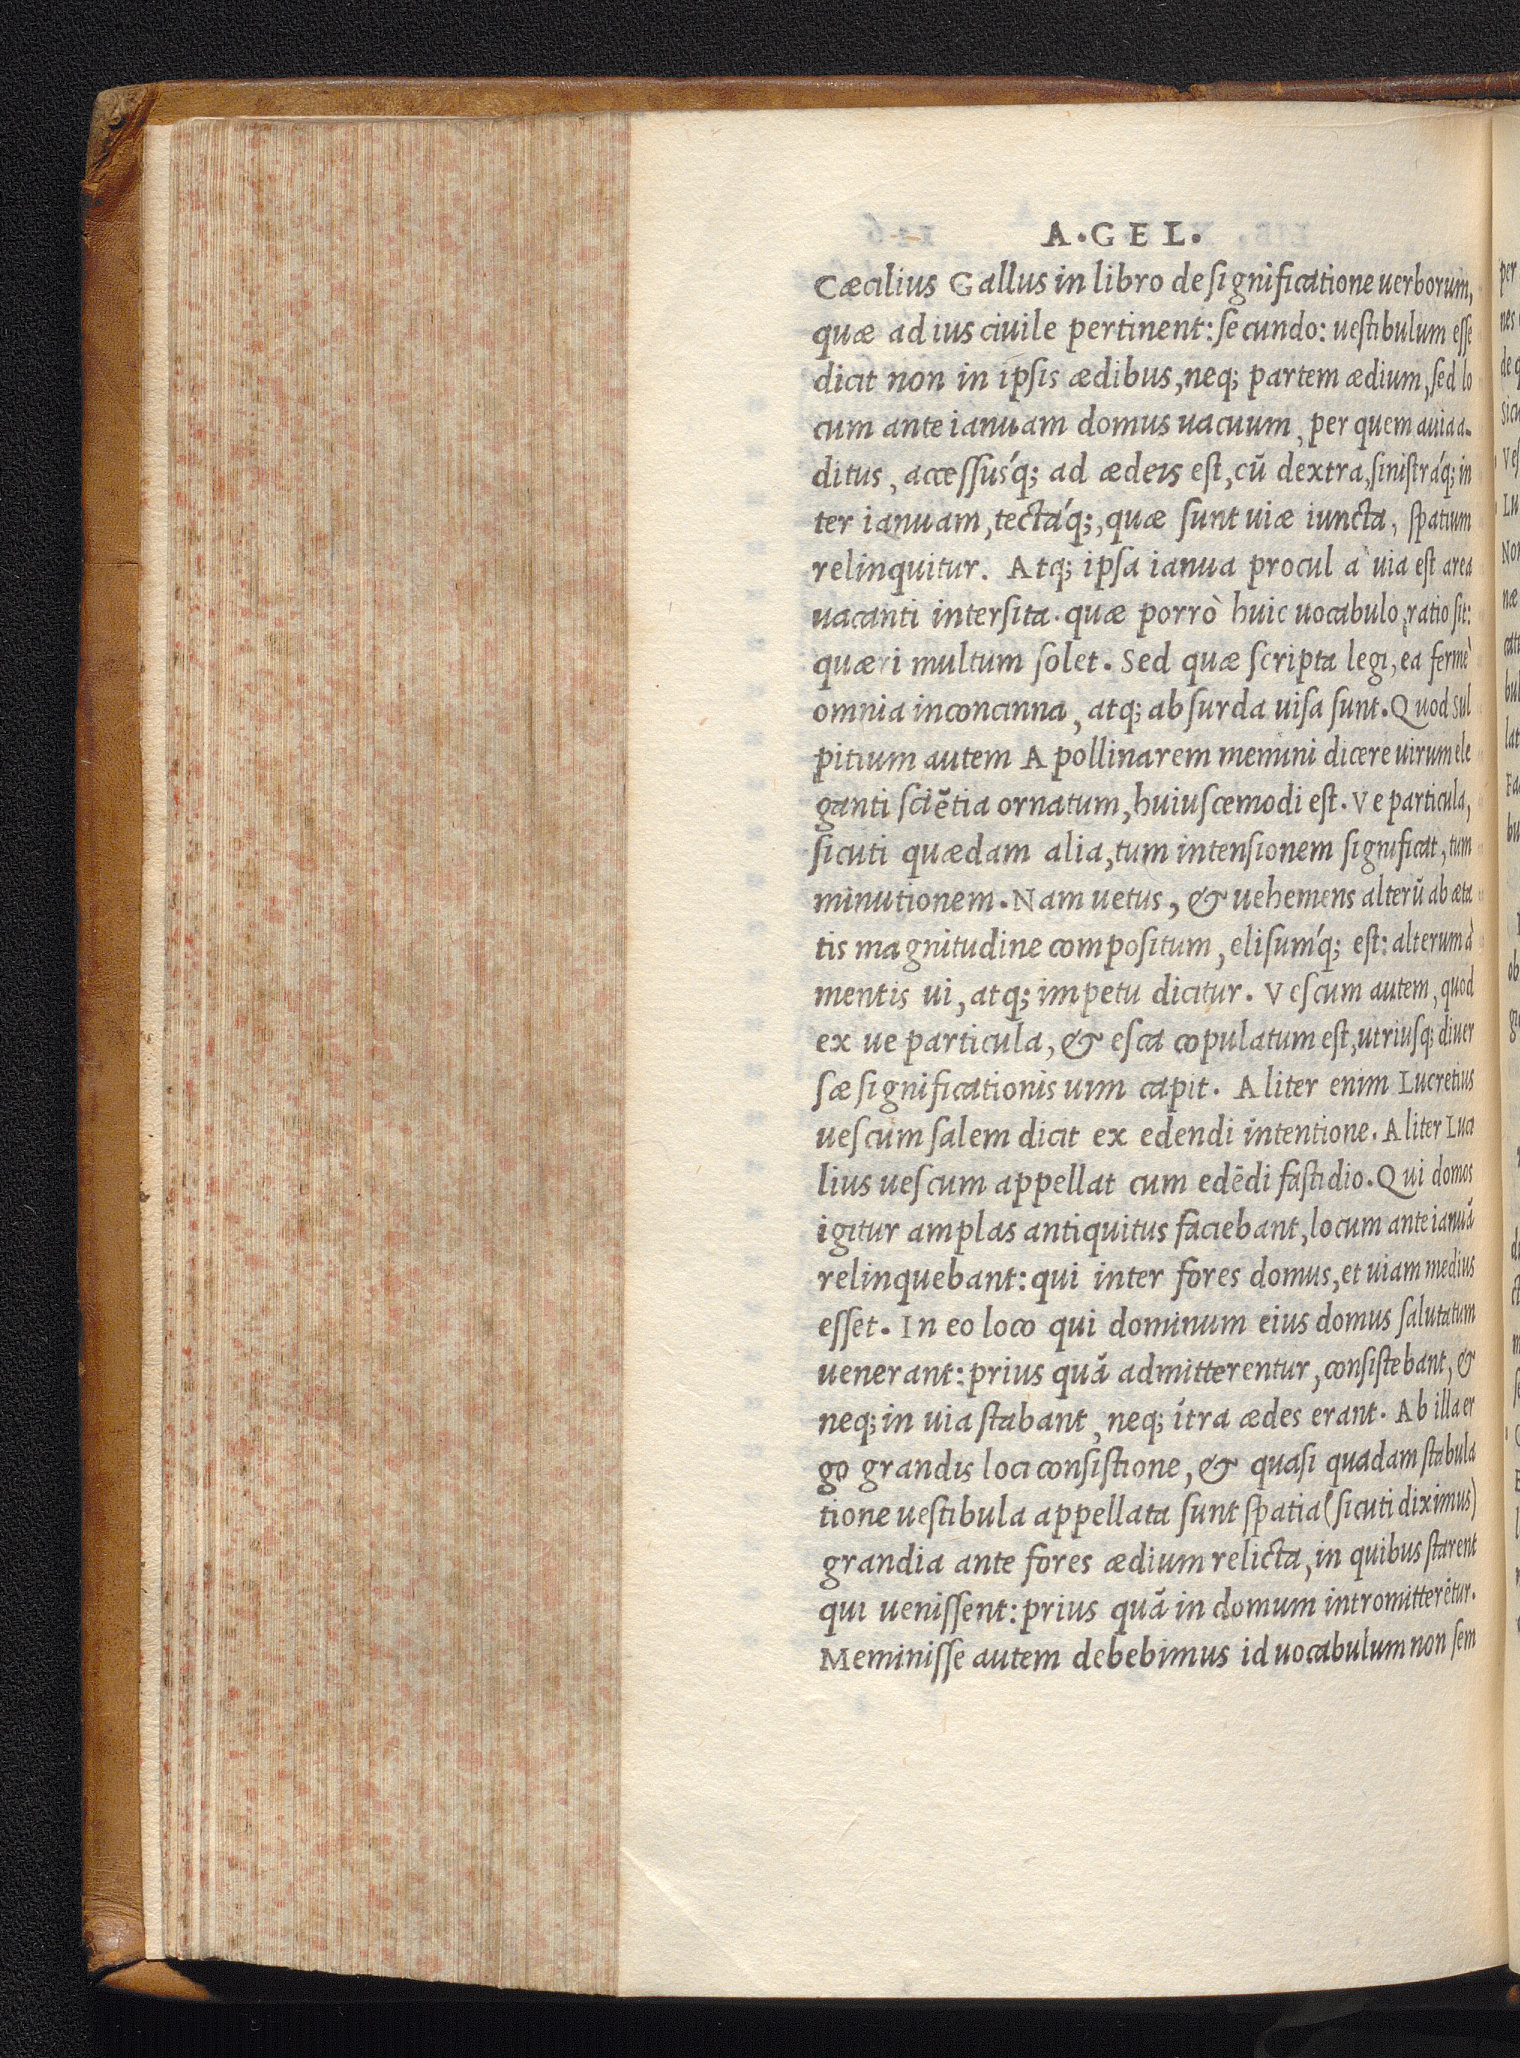 A·GEL.
Cæcilius Gallus in libro de ſignificatione uerborum,
quæ ad ius ciuile pertinent: ſecundo: ueſtibulum eſſe
dicit non in ipſis ædibus, neq; partem ædium, ſed lo
cum ante ianuam domus uacuum, per quem auia a-
ditus, acceſſusq́; ad ædeis eſt, cũ dextra, ſiniſtráq; in
ter ianuam, tectáq;, quæ ſunt uiæ iuncta, ſpatium
relinquitur. Atq; ipſa ianua procul à uia eſt area
uacanti interſita. quæ porrò huic uocabulo, ratio ſit:
quæri multum ſolet. Sed quæ ſcripta legi, ea fermè
omnia inconcinna, atq; abſurda uiſa ſunt. Quod Sul
pitium autem Apollinarem memini dicere uirum ele
ganti ſciẽtia ornatum, huiuſcemodi eſt. Ve particula,
ſicuti quædam alia, tum intenſionem ſignificat, tum
minutionem. Nam uetus, & uehemens alterũ ab æta
tis magnitudine compoſitum, eliſumq́; eſt: alterum à
mentis ui, atq; impetu dicitur. Veſcum autem, quod
ex ue particula, & eſca copulatum eſt, utriuſq; diuer
ſæ ſignificationis uim capit. Aliter enim Lucretius
ueſcum ſalem dicit ex edendi intentione. Aliter Luci
lius ueſcum appellat cum edẽdi faſtidio. Qui domos
igitur amplas antiquitus faciebant, locum ante ianuã
relinquebant: qui inter fores domus, et uiam medius
eſſet. In eo loco qui dominum eius domus ſalutatum
uenerant: prius quã admitterentur, conſiſtebant, &
neq; in uia ſtabant, neq; ítra ædes erant. Ab illa er
go grandis loci conſiſtione, & quaſi quadam ſtabula
tione ueſtibula appellata ſunt ſpatia (ſicuti diximus)
grandia ante fores ædium relicta, in quibus ſtarent
qui ueniſſent: prius quã in domum intromitterẽtur.
Meminiſſe autem debebimus id uocabulum non ſem